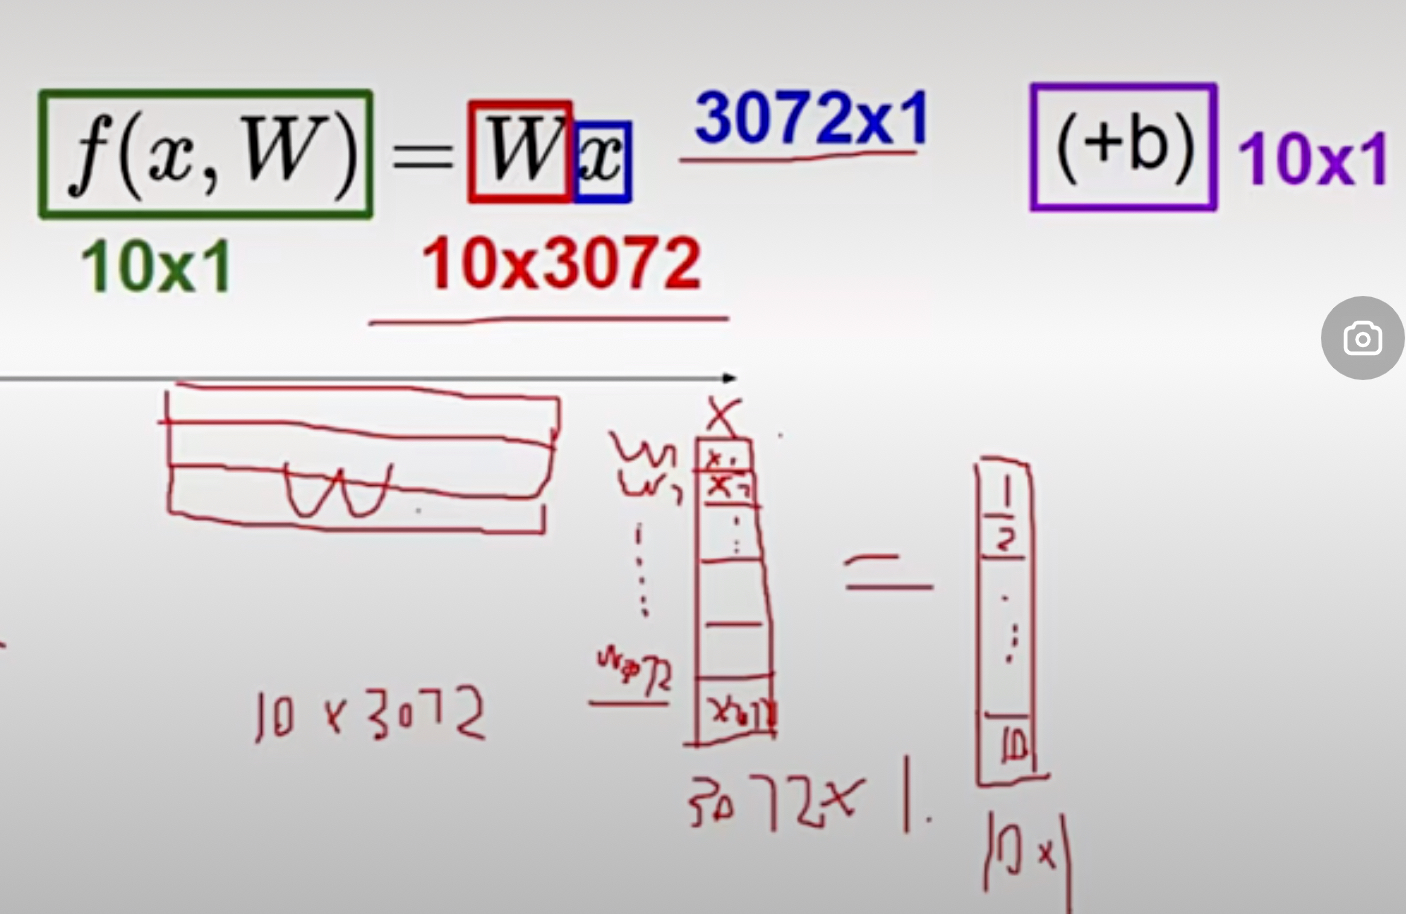 f(x, W) = Wx 3072x1 (+b) 10x1
10x1 10x3072
X
W₁ x₁
W₂ x₂
W
1
2
⋮ ⋮ ⋮
W3072 x3072
10
10 x 3072
3072 x 1.
10 x 1